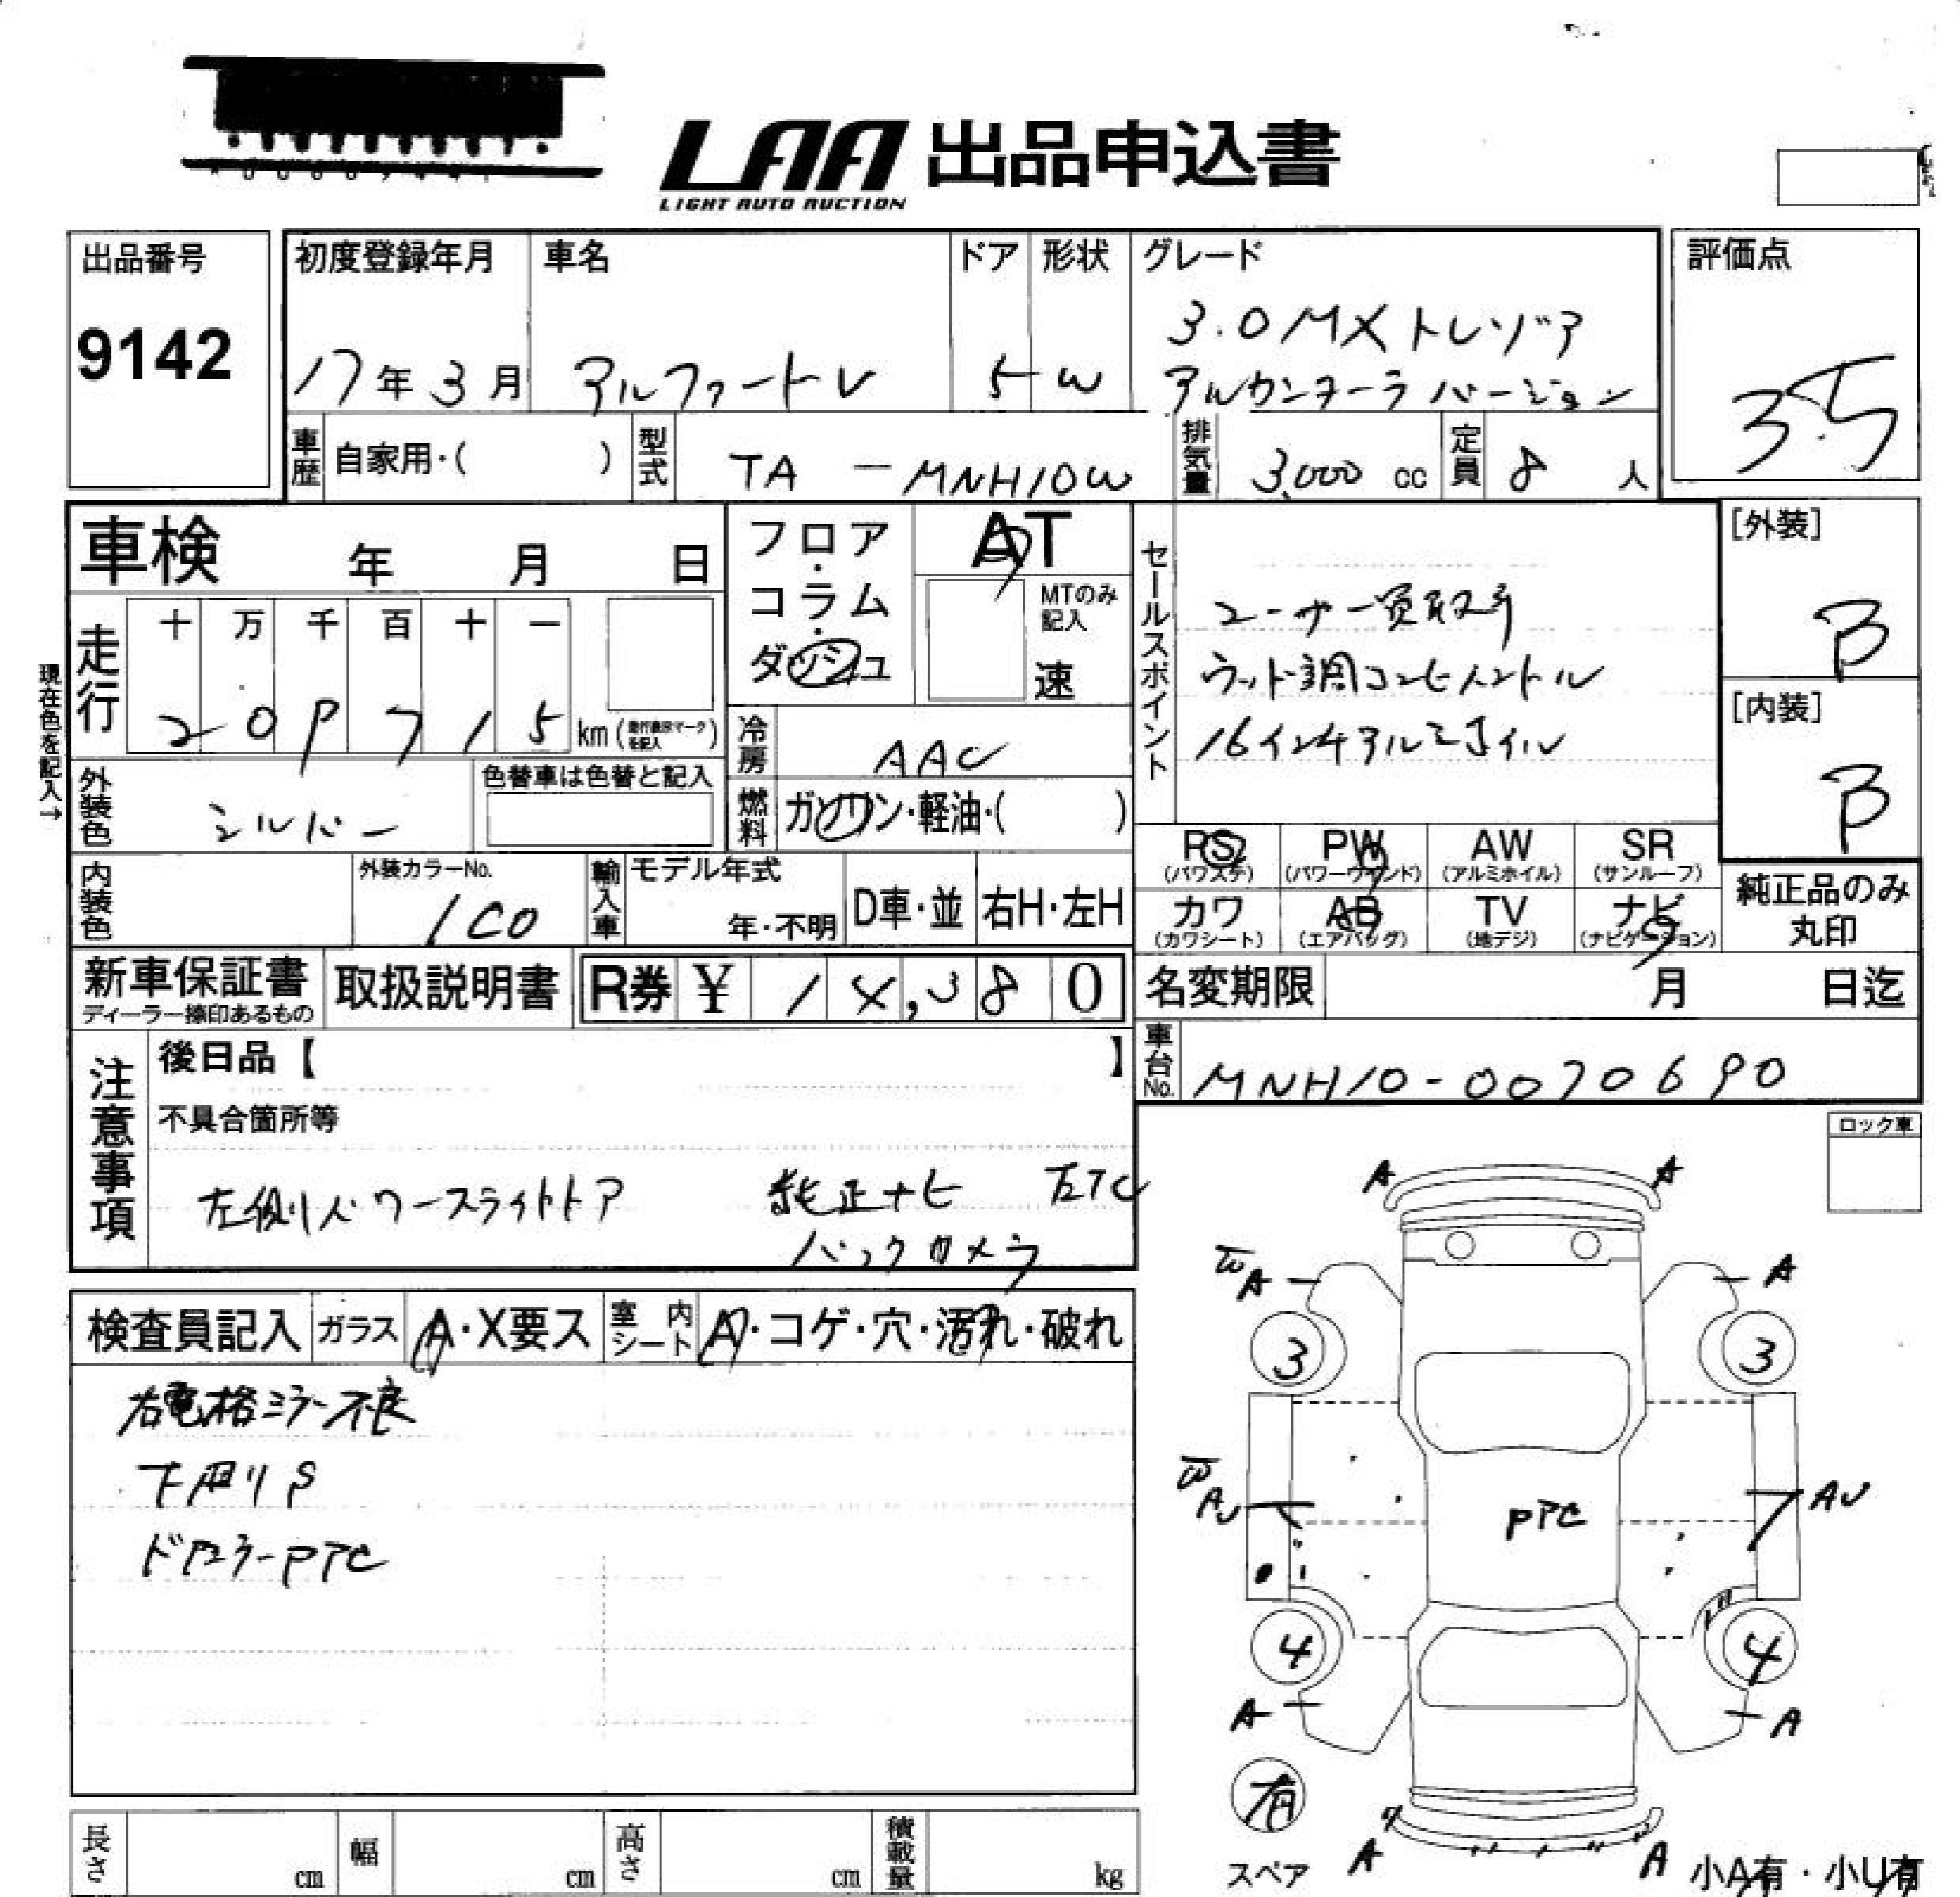 LAA 出品申込書
LIGHT AUTO AUCTION
出品番号
9142
初度登録年月
17年3月
車名
アルファードV
ドア
5
形状
W
グレード
3.0MXトレゾア
アルカンターラバージョン
評価点
3.5
車歴 自家用・( )
型式 TA - MNH10W
排気量 3,000 cc
定員 8 人
車検 年 月 日
フロア・コラム・ダッシュ
AT
MTのみ記入
速
セールスポイント
ユーザー買取車
ウッド調コンビハンドル
16インチアルミホイル
[外装]
B
[内装]
B
現在色を記入→
走行
十 万 千 百 十 一
2 0 9 7 1 5 km(走行表示マークを記入)
冷房 AAC
燃料 ガソリン・軽油・( )
外装色 シルバー
色替車は色替と記入
内装色
外装カラーNo.
1C0
輸入車
モデル年式
年・不明
D車・並
右H・左H
PS (パワステ)
PW (パワーウインド)
AW (アルミホイル)
SR (サンルーフ)
カワ (カワシート)
AB (エアバッグ)
TV (地デジ)
ナビ (ナビゲーション)
純正品のみ丸印
新車保証書
ディーラー捺印あるもの
取扱説明書
R券 ¥ 1 4,3 8 0
名変期限 月 日迄
車台No. MNH10-0070690
注意事項
後日品【 】
不具合箇所等
左側パワースライドドア 純正ナビ ETC
バックカメラ
ロック車
検査員記入
ガラス A・X要ス
室内シート A・コゲ・穴・汚れ・破れ
右電格ミラー不良
下廻りS
ドアミラーPTC
A A
W A A
3 3
W AU AU
PTC
4 4
A A
有
スペア
A A
小A有・小U有
長さ cm
幅 cm
高さ cm
積載量 kg